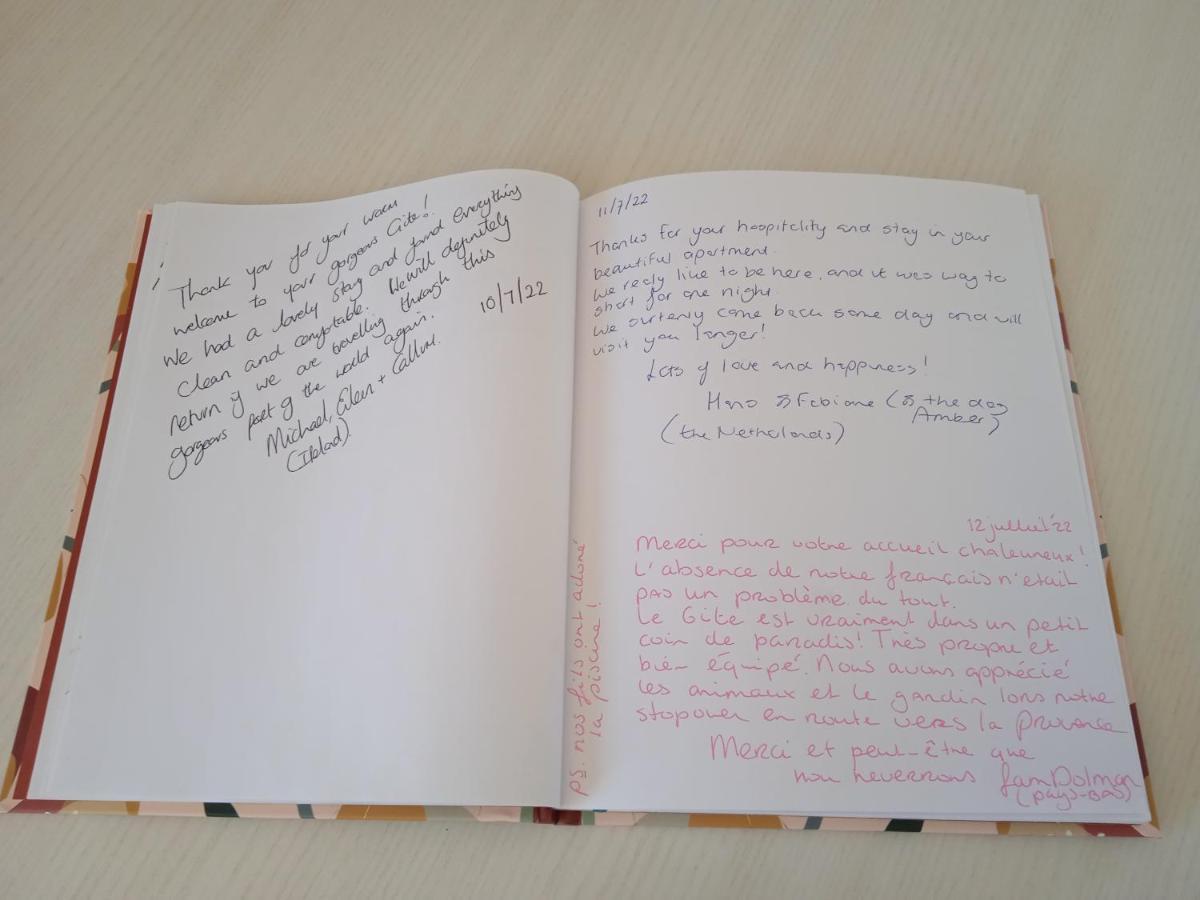 Thank you for your warm
welcome to your gorgeous Gite!
We had a lovely stay and found everything
clean and comfortable. We will definitely
return if we are travelling through this
gorgeous part of the world again.
10/7/22
Michael, Eileen + Callum.
(Ireland).
11/7/22
Thanks for your hospitality and stay in your
beautiful apartment.
We realy like to be here, and it was way to
short for one night.
We come back some day and will
visit you longer!
Lots of love and happiness!
Hans & Fabiane (& the dog
Amber)
(the Netherlands)
12 juillet '22
Merci pour votre accueil chaleureux!
L'absence de notre français n'etait
pas un problème du tout.
Le Gite est vraiment dans un petit
coin de paradis! Très propre et
bien équipé. Nous avons apprécié
les animaux et le gardin lors notre
stopover en route vers la Provence
Merci et peut-être que
nou reverrons fam Dolman
(Pays-Bas)
ps. nos fils ont adoré
la piscine!